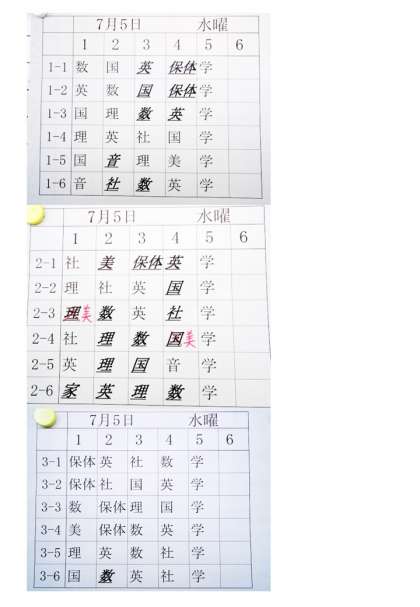 7月5日 水曜
1 2 3 4 5 6
1-1 数 国 英 保体 学
1-2 英 数 国 保体 学
1-3 国 理 数 英 学
1-4 理 英 社 国 学
1-5 国 音 理 美 学
1-6 音 社 数 英 学
7月5日 水曜
1 2 3 4 5 6
2-1 社 美 保体 英 学
2-2 理 社 英 国 学
2-3 理 美 数 英 社 学
2-4 社 理 数 国 美 学
2-5 英 理 国 音 学
2-6 家 英 理 数 学
7月5日 水曜
1 2 3 4 5 6
3-1 保体 英 社 数 学
3-2 保体 社 国 英 学
3-3 数 保体 理 国 学
3-4 美 保体 数 英 学
3-5 理 英 数 社 学
3-6 国 数 英 社 学